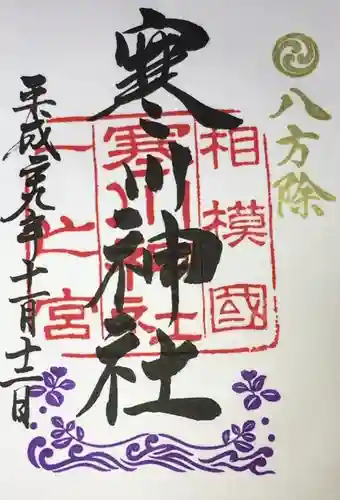 八方除
相模國
寒川神社
寒川神社
一之宮
平成廿九年十一月十二日